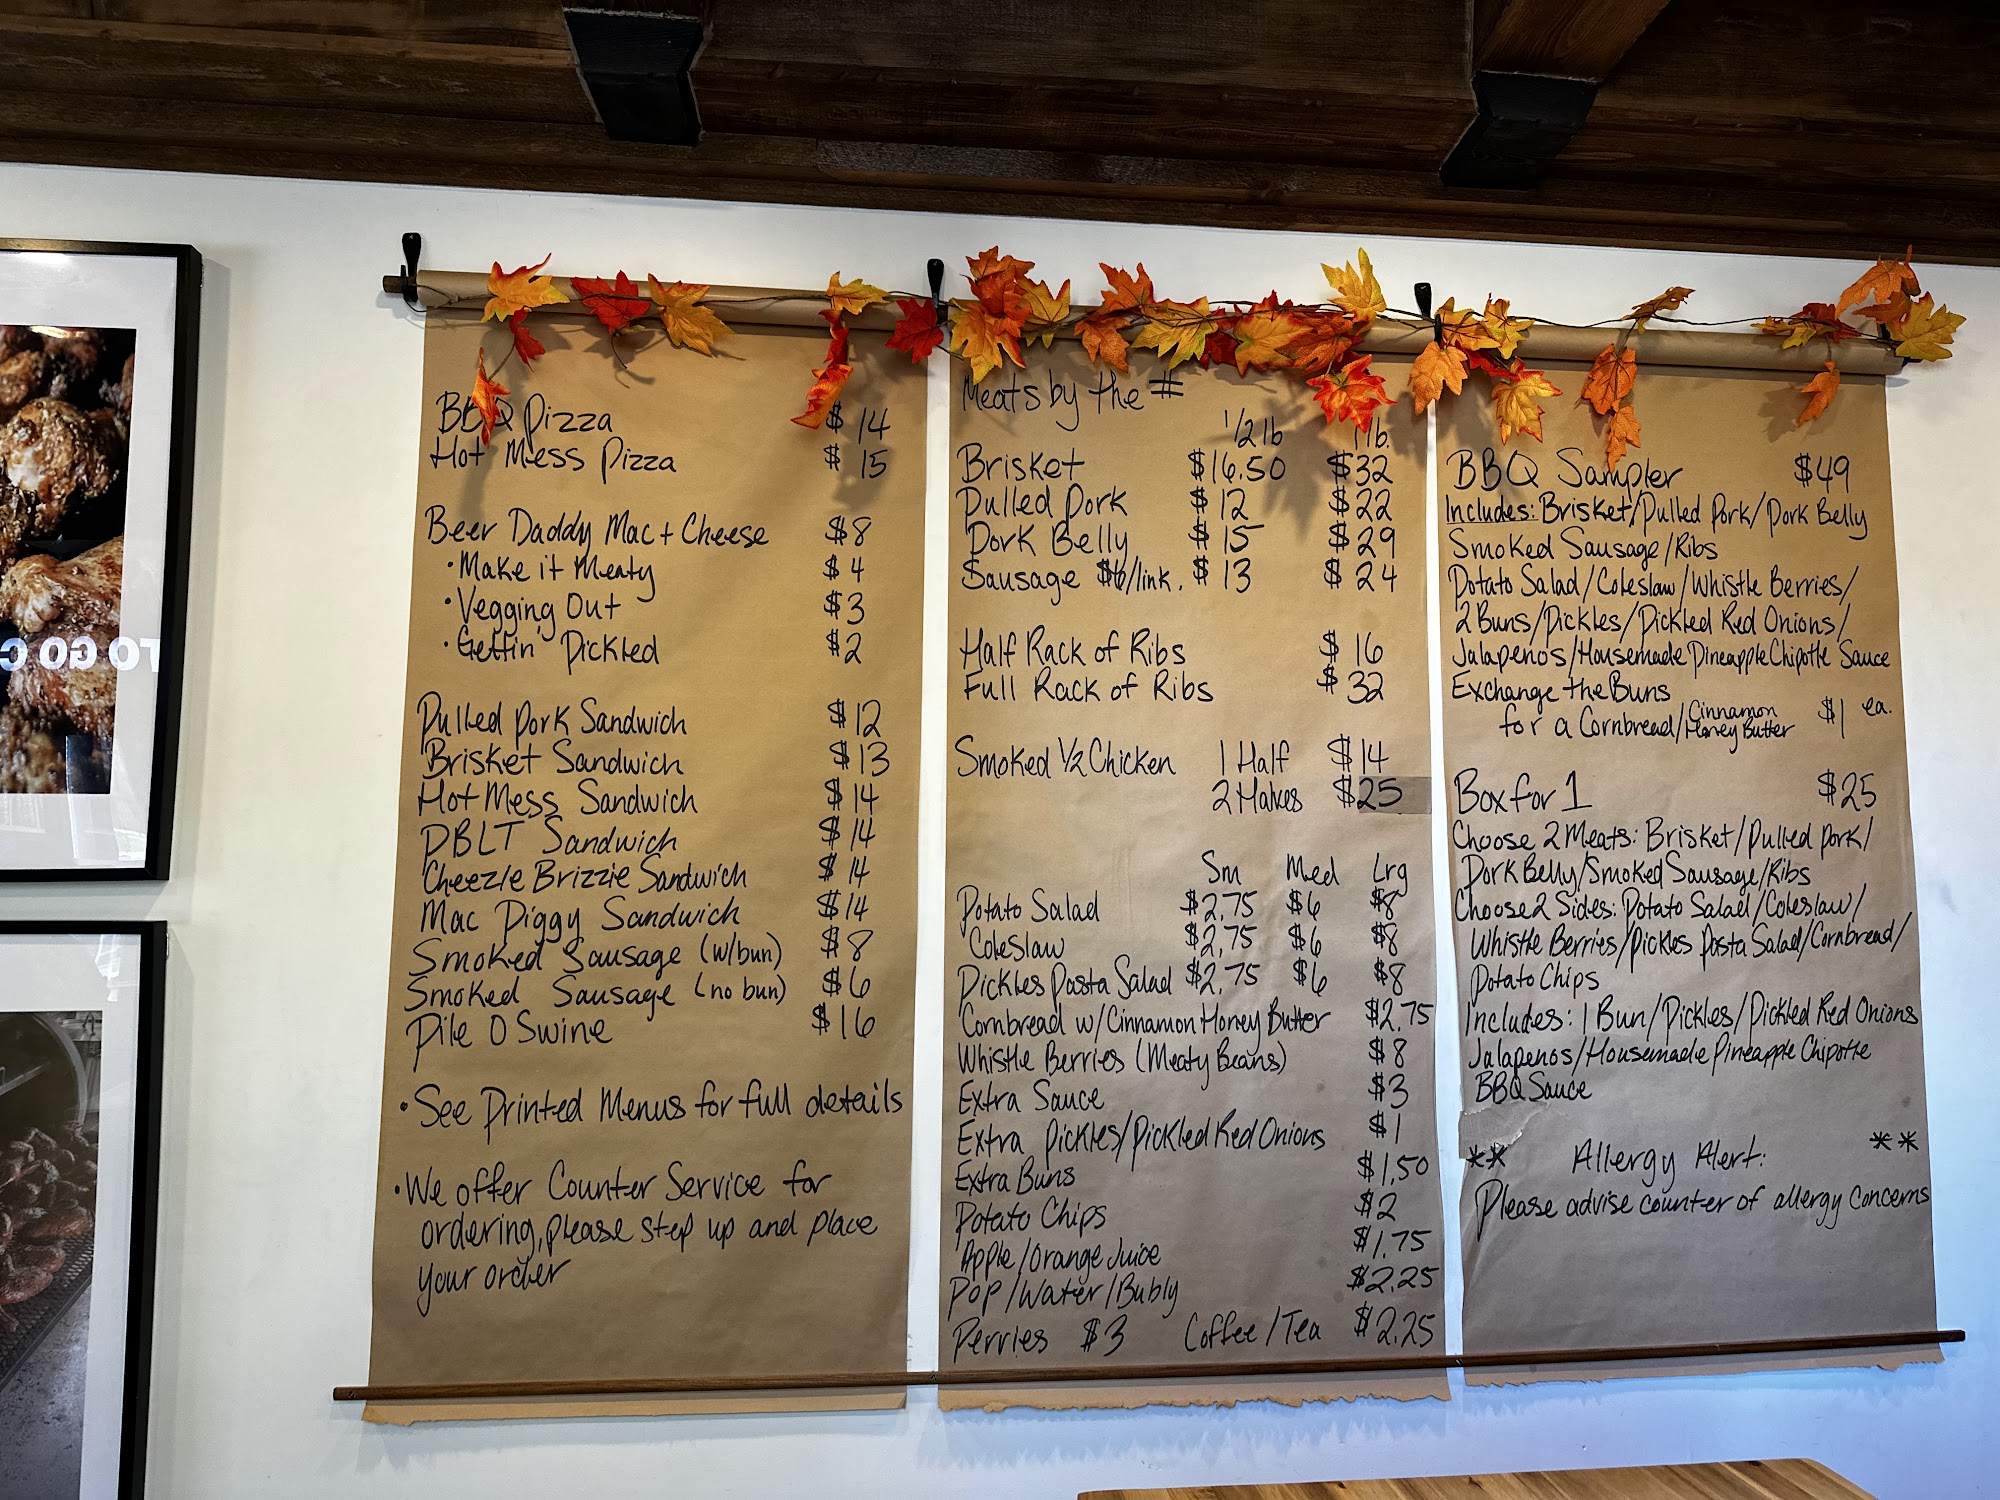 BBQ Pizza $14
Hot Mess Pizza $15
Beer Daddy Mac + Cheese $8
• Make it Meaty $4
• Vegging Out $3
• Gettin' Pickled $2
Pulled Pork Sandwich $12
Brisket Sandwich $13
Hot Mess Sandwich $14
PBLT Sandwich $14
Cheezie Brizzie Sandwich $14
Mac Piggy Sandwich $14
Smoked Sausage (w/bun) $8
Smoked Sausage (no bun) $6
Pile O Swine $16
• See Printed Menus for full details
• We offer Counter Service for
ordering, please step up and place
your order
Meats by the #
1/2 lb 1 lb.
Brisket $16.50 $32
Pulled Pork $12 $22
Pork Belly $15 $29
Sausage $6/link. $13 $24
Half Rack of Ribs $16
Full Rack of Ribs $32
Smoked 1/2 Chicken 1 Half $14
2 Halves $25
Sm Med Lrg
Potato Salad $2.75 $6 $8
Coleslaw $2.75 $6 $8
Pickles Pasta Salad $2.75 $6 $8
Cornbread w/Cinnamon Honey Butter $2.75
Whistle Berries (Meaty Beans) $8
Extra Sauce $3
Extra Pickles/Pickled Red Onions $1
Extra Buns $1.50
Potato Chips $2
Apple/Orange Juice $1.75
Pop/Water/Bubly $2.25
Perries $3 Coffee/Tea $2.25
BBQ Sampler $49
Includes: Brisket/Pulled Pork/Pork Belly
Smoked Sausage/Ribs
Potato Salad/Coleslaw/Whistle Berries/
2 Buns/Pickles/Pickled Red Onions/
Jalapenos/Housemade Pineapple Chipotle Sauce
Exchange the Buns
for a Cornbread/Cinnamon Honey Butter $1 ea.
Box for 1 $25
Choose 2 Meats: Brisket/Pulled Pork/
Pork Belly/Smoked Sausage/Ribs
Choose 2 Sides: Potato Salad/Coleslaw/
Whistle Berries/Pickles Pasta Salad/Cornbread/
Potato Chips
Includes: 1 Bun/Pickles/Pickled Red Onions
Jalapenos/Housemade Pineapple Chipotle
BBQ Sauce
** Allergy Alert: **
Please advise counter of allergy concerns
TO GO